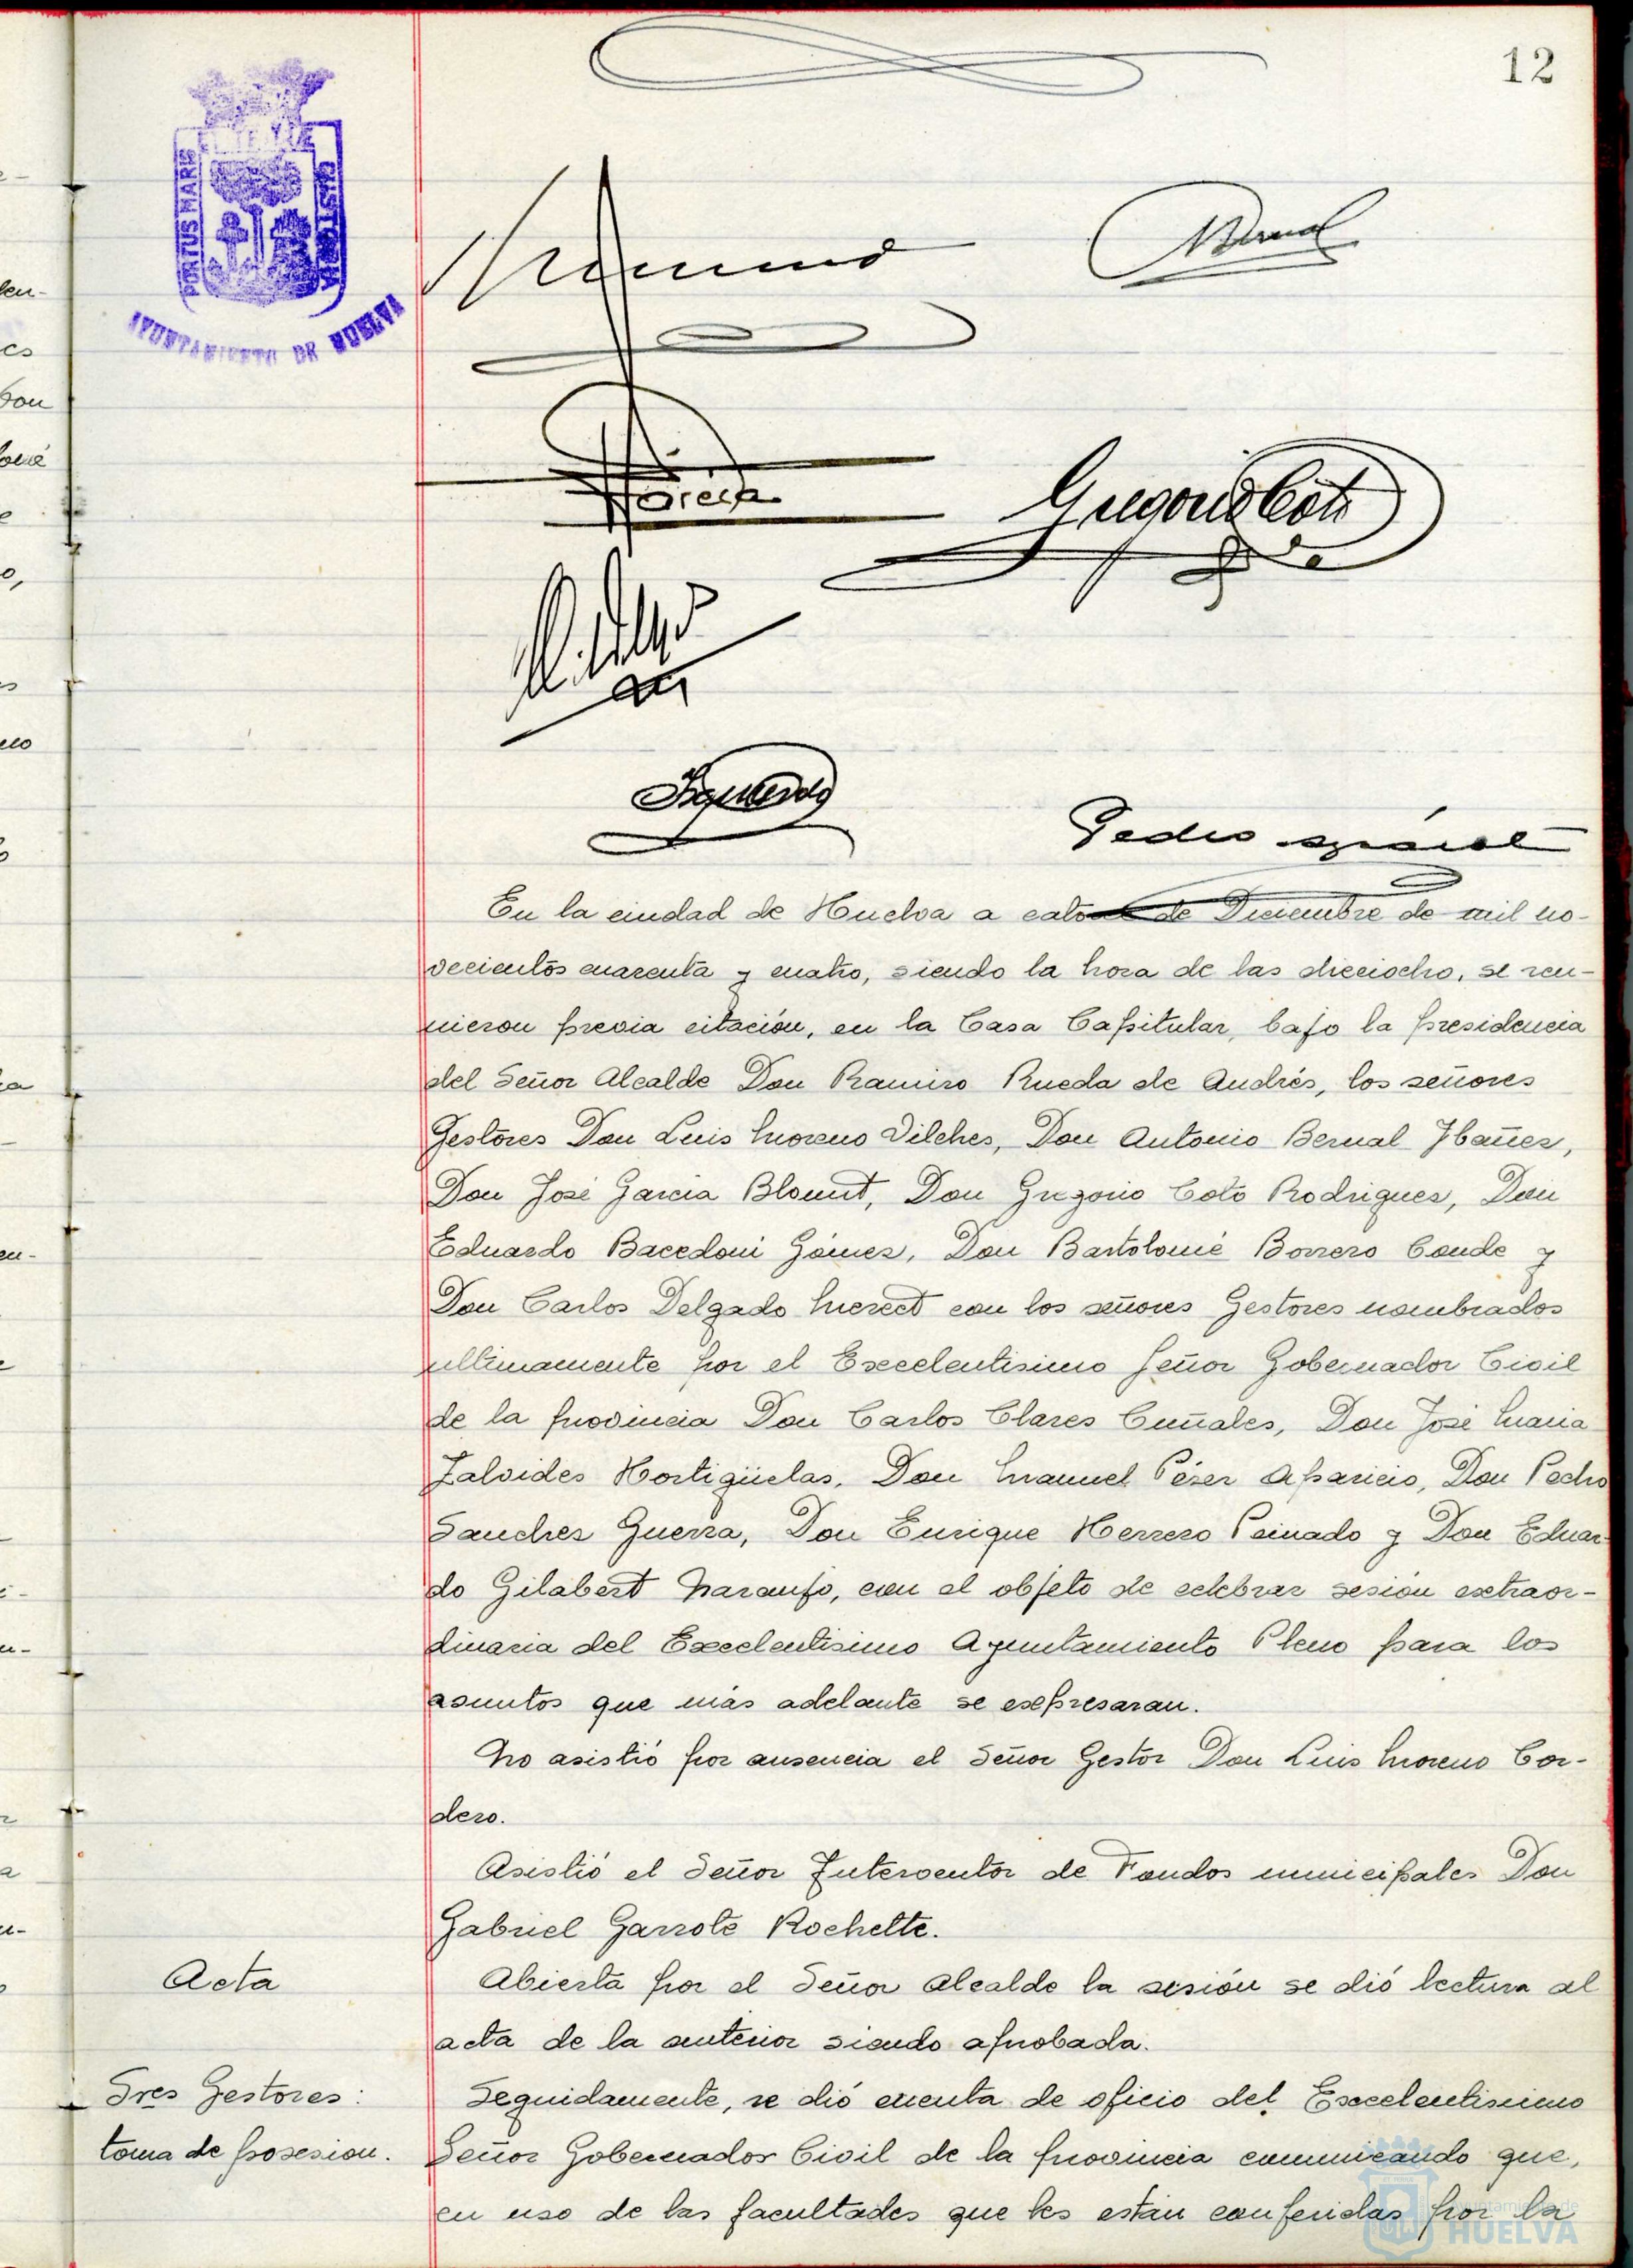 12
PORTUS MARIS
CUSTODIA
AYUNTAMIENTO DE HUELVA
Bernal
García
Gregorio Coto
Izquierdo
Pedro
En la ciudad de Huelva a catorce de Diciembre de mil no-
vecientos cuarenta y cuatro, siendo la hora de las dieciocho, se reu-
nieron previa citación, en la Casa Capitular, bajo la presidencia
del Señor Alcalde Don Ramiro Rueda de Andrés, los señores
Gestores Don Luis Moreno Vilches, Don Antonio Bernal Ibañez,
Don José Garcia Blount, Don Gregorio Coto Rodriguez, Don
Eduardo Bacedoni Gómez, Don Bartolomé Borrero Conde y
Don Carlos Delgado Merect con los señores Gestores nombrados
ultimamente por el Excelentisimo Señor Gobernador Civil
de la provincia Don Carlos Clares Cuñales, Don José Maria
Zalvides Hortigüelas, Don Manuel Pérez Aparicio, Don Pedro
Sanchez Guerra, Don Enrique Herrero Peinado y Don Eduar-
do Gilabert Naranjo, con el objeto de celebrar sesión extraor-
dinaria del Excelentisimo Ayuntamiento Pleno para los
asuntos que más adelante se expresaran.
No asistió por ausencia el Señor Gestor Don Luis Moreno Cor-
dero.
Asistió el Señor Interventor de Fondos municipales Don
Gabriel Garrote Rochelte.
Acta
Abierta por el Señor Alcalde la sesión se dió lectura al
acta de la anterior siendo aprobada.
Sres Gestores:
toma de posesion.
Seguidamente, se dió cuenta de oficio del Excelentisimo
Señor Gobernador Civil de la provincia comunicando que,
en uso de las facultades que les están conferidas por la
Ayuntamiento de
HUELVA